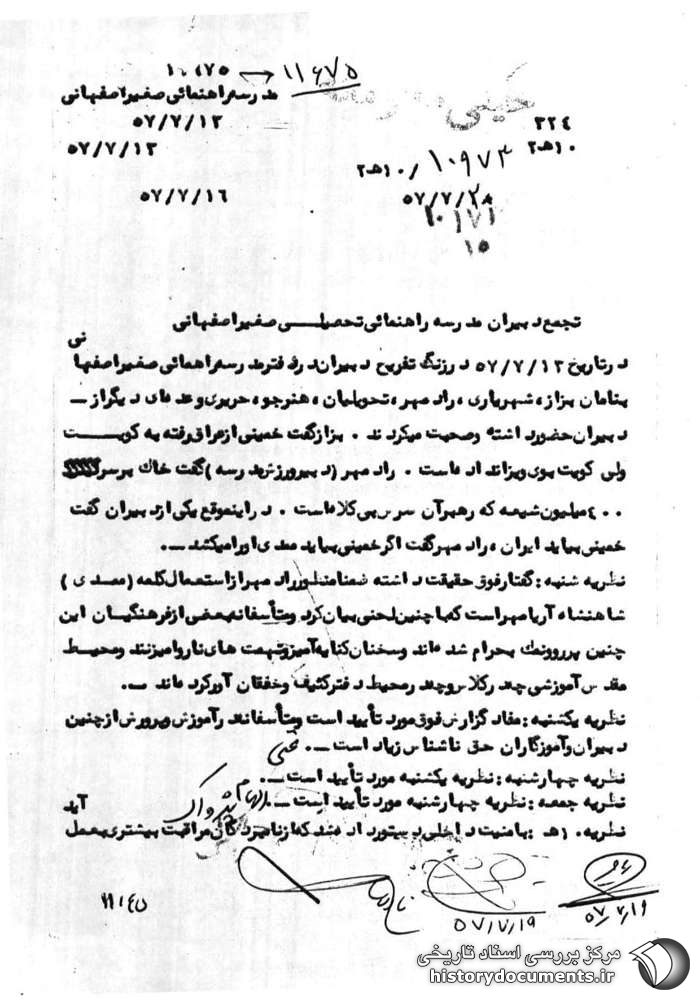 ۱۰۶۷۵ ← ۱۱۶۷۵
مدرسه راهنمائی صغیر اصفهانی
۳۲۴
۵۷/۷/۱۳
۱۰هـ۲
۵۷/۷/۱۳
۱۰هـ۲/ ۱۰۹۷۳
۵۷/۷/۱۶
۵۷/۷/۲۸
۱۰۱۷۱
۱۵
تجمع دبیران مدرسه راهنمائی تحصیلی صغیر اصفهانی
در تاریخ ۵۷/۷/۱۳ در زنگ تفریح دبیران در دفتر مدرسه راهمائی صغیر اصفهانی
بنامان بزاز، شهریاری، راد مهر، تحویلیان، هنرجو، حریری و عده‌ای دیگر از ـ
دبیران حضور داشته و صحبت میکردند . بزاز گفت خمینی از عراق رفته به کویت
ولی کویت بوی ویزا نداده است . راد مهر (دبیر ورزش مدرسه) گفت خاک بر سر
۴۰۰ میلیون شیعه که رهبر آن سرش بی کلاه است . در اینموقع یکی از دبیران گفت
خمینی بیاید ایران، راد مهر گفت اگر خمینی بیاید ممدی اورا میکشد ـ.
نظریه شنبه : گفتار فوق حقیقت داشته ضمنا منظور راد مهر از استعمال کلمه (ممدی)
شاهنشاه آریامهر است که با چنین لحنی بیان کرد و متأسفانه بعضی از فرهنگیان این
چنین پررو و نمک بحرام شده‌اند و سخنان کنایه آمیز و تهمت های ناروا میزنند و محیط
مقدس آموزشی چه در کلاس و چه در محیط دفتر کثیف و خفقان آور کرده‌اند ـ.
نظریه یکشنبه : مفاد گزارش فوق مورد تأیید است و متأسفانه در آموزش و پرورش از چنین
دبیران و آموزگاران حق ناشناس زیاد است ـ.
نظریه چهارشنبه : نظریه یکشنبه مورد تأیید است ـ.
نظریه جمعه : نظریه چهارشنبه مورد تأیید است ـ. پژواک
نظریه ۱۰هـ : بامنیت داخلی دستور داده شد که از نامبردگان مراقبت بیشتری بعمل آید
۵۷/۷/۱۹
۵۷/۷/۱۹
مرکز بررسی اسناد تاریخی
historydocuments.ir